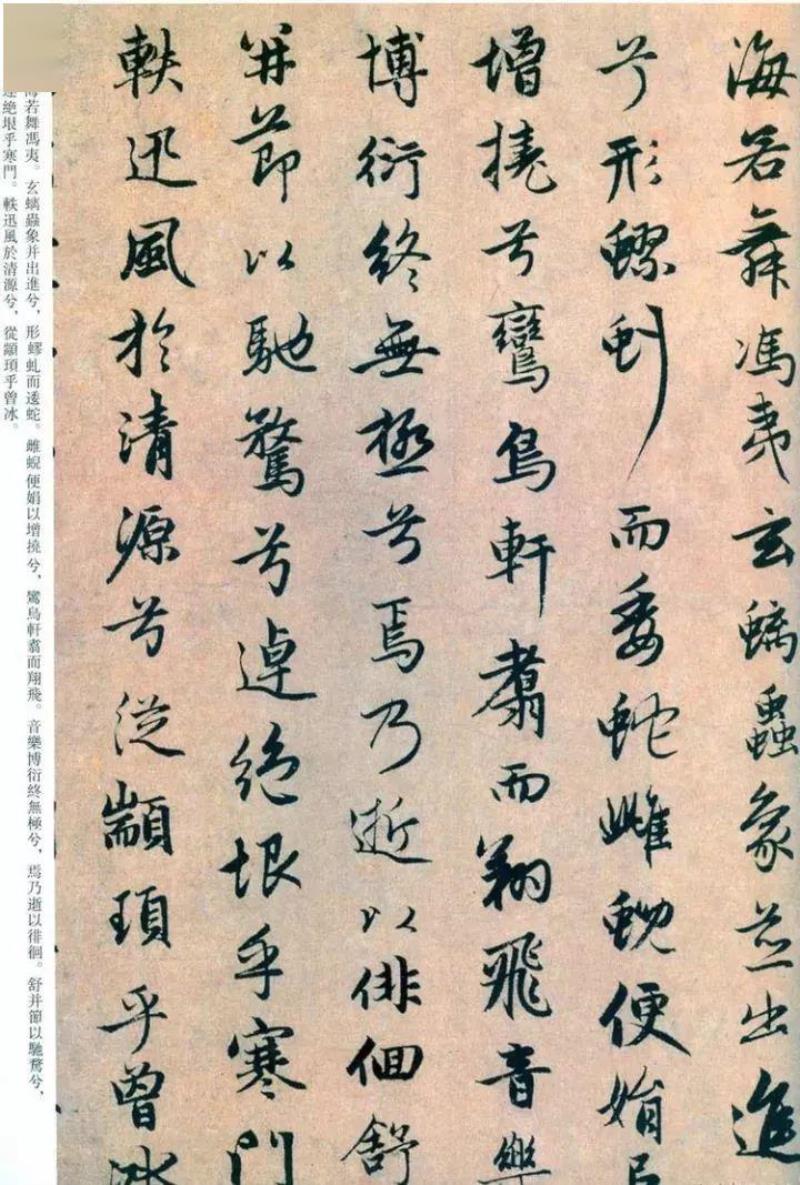 海若舞馮夷玄螭蟲象並出進
兮形蟉虯而委蛇雌蜺便娟以
增撓兮鸞鳥軒翥而翔飛音樂
博衍終無極兮焉乃逝以俳佪舒
并節以馳騖兮逴絕垠乎寒門
軼迅風於清源兮從顓頊乎曾冰
若舞馮夷。玄螭蟲象并出進兮，形蟉虬而逶蛇。雌蜺便娟以增撓兮，鸞鳥軒翥而翔飛。音樂博衍終無極兮，焉乃逝以徘徊。舒并節以馳騖兮，
逴絶垠乎寒門。軼迅風於清源兮，從顓頊乎曾冰。